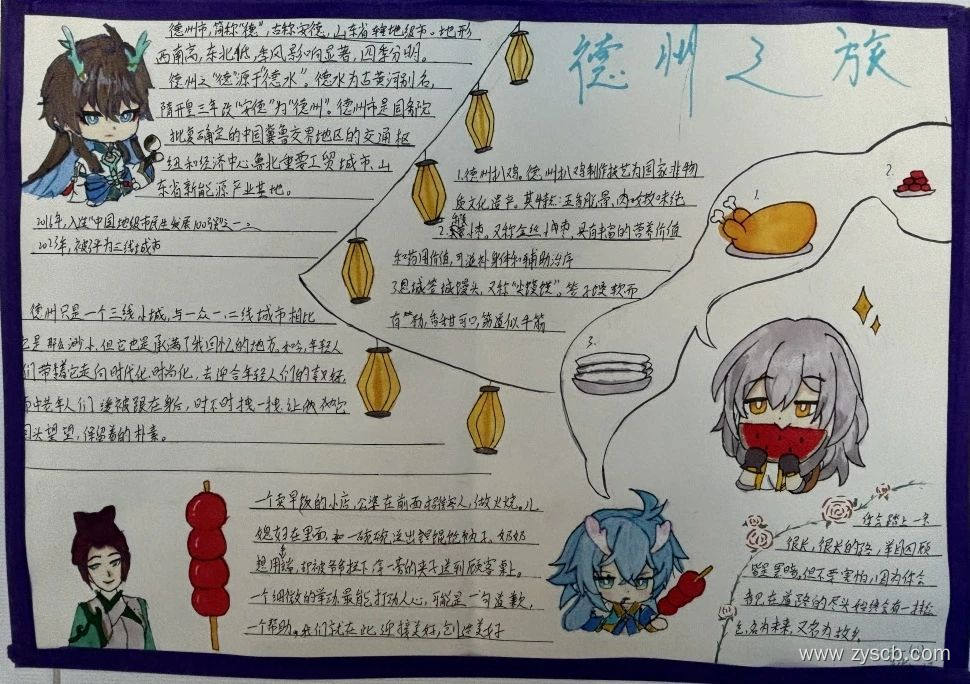 德州之旅
德州市,简称"德",古称安德,山东省辖地级市。地形
西南高,东北低,季风影响显著,四季分明。
德州之"德"源于"德水"。德水为古黄河别名,
隋开皇三年改"安德"为"德州"。德州市是国务院
批复确定的中国冀鲁交界地区的交通枢
纽和经济中心鲁北重要工贸城市、山
东省新能源产业基地。
2016年,入选"中国地级市民生发展100强"之一
2023年,被评为三线城市
1.德州扒鸡。德州扒鸡制作技艺为国家非物
质文化遗产。其特点:五香脱骨,肉嫩味纯
2.小枣。又称金丝小枣,具有丰富的营养价值
和药用价值,可滋补身体和辅助治疗
3.恩城签子馒头,又称
有,香甜可口,筋道似
1.
2.
3.
德州只是一个三线小城,与一众一、二线城市相比
是那么渺小,但它也是承满了我回忆的地方。如今,年轻人
们带着它走向时代化、时尚化,去迎合年轻人们的
而中老年人们 缓缓跟在身后,时不时拽一拽,让
回头望望,保留着的朴素。
一个卖早饭的小店,公婆在前面招待客人,做火烧。儿
媳妇在里面 一碗碗送出
想用,却被爷爷按下 客桌上。
一个细微的举动最能打动人心,可能是一句道歉,
一个帮助。我们就在此迎接美好,创造美好
你会踏上一条
很长,很长的路,
皆是黑暗,但不要害怕,因为你会
在道路的尽头始终会有一抹
色,名为未来,又名为故乡
www.zyscb.com